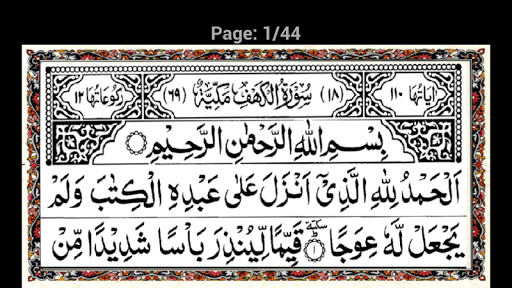 Page: 1/44
اٰيَاتُهَا ١١٠ (١٨) سُوْرَةُ الْكَهْفِ مَكِّيَّةٌ (٦٩) رُكُوْعَاتُهَا ١٢
بِسْمِ اللّٰهِ الرَّحْمٰنِ الرَّحِيْمِ
اَلْحَمْدُ لِلّٰهِ الَّذِيْۤ اَنْزَلَ عَلٰى عَبْدِهِ الْكِتٰبَ وَلَمْ
يَجْعَلْ لَّهٗ عِوَجًا ١ سكتة قَيِّمًا لِّيُنْذِرَ بَاْسًا شَدِيْدًا مِّنْ